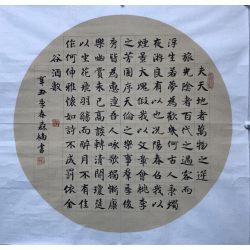 夫天地者萬物之逆
旅光陰者百代之過客而
浮生若夢為歡幾何古人秉燭
夜遊良有以也況陽春召我以
煙景大塊假我以文章會桃李
之芳園序天倫之樂事群季俊
秀皆為惠連吾人詠歌獨慚康
樂幽賞未已高談轉清開瓊筵
以坐花飛羽觴而醉月不有佳
作何伸雅懷如詩不成罰依金
谷酒數
辛丑季春森書